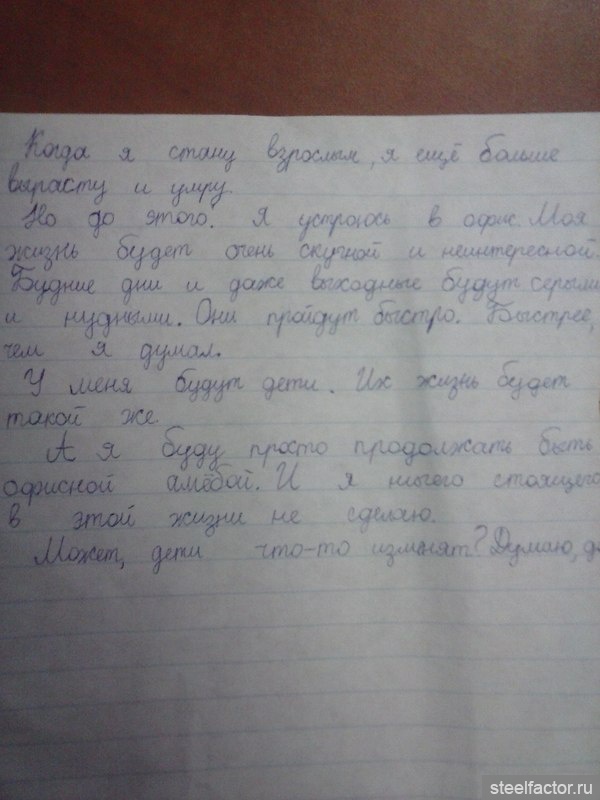 Когда я стану взрослым, я ещё больше
вырасту и умру.
Но до этого. Я устроюсь в офис. Моя
жизнь будет очень скучной и неинтересной.
Будние дни и даже выходные будут серыми
и нудными. Они пройдут быстро. Быстрее,
чем я думал.
У меня будут дети. Их жизнь будет
такой же.
А я буду просто продолжать быть
офисной амёбой. И я ничего стоящего
в этой жизни не сделаю.
Может, дети что-то изменят? Думаю, д
steelfactor.ru